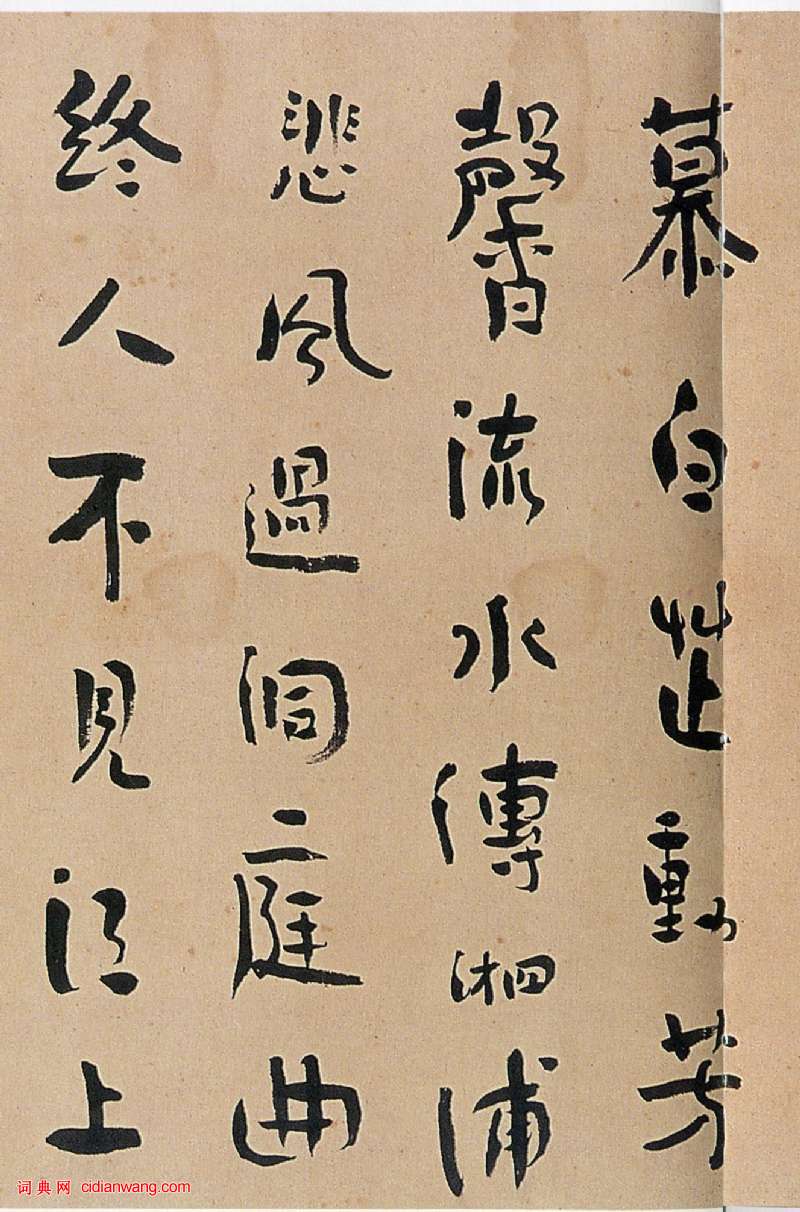 慕白芷動芳
馨流水傳湘浦
悲風過洞庭曲
終人不見江上
词典网 cidianwang.com